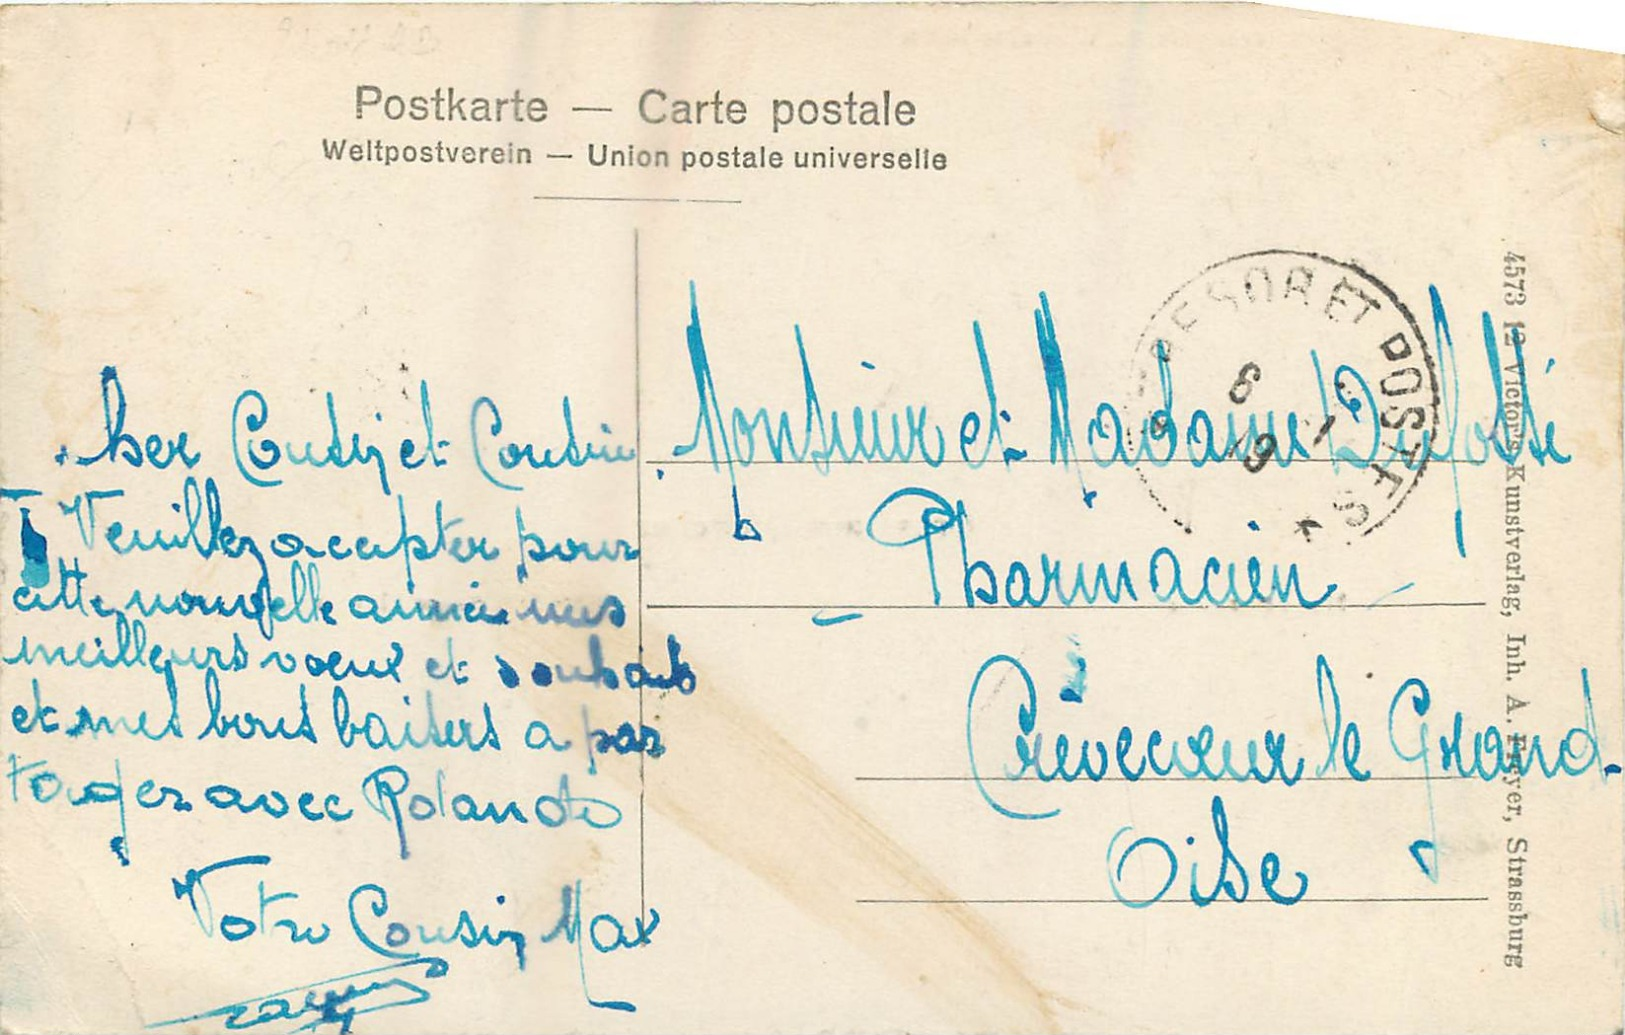 Postkarte — Carte postale
Weltpostverein — Union postale universelle
Cher Cousin et Cousine
Veuillez accepter pour
cette nouvelle année mes
meilleurs voeux et souhaits
et mes bons baisers a par
tager avec Rolande
Votre Cousin Max
TRESOR ET POSTES
6 1
19
Monsieur et Madame Dufossé
Pharmacien
Crèvecoeur le Grand
Oise
4573 12 Victor's Kunstverlag, Inh. A. Freyer, Strassburg